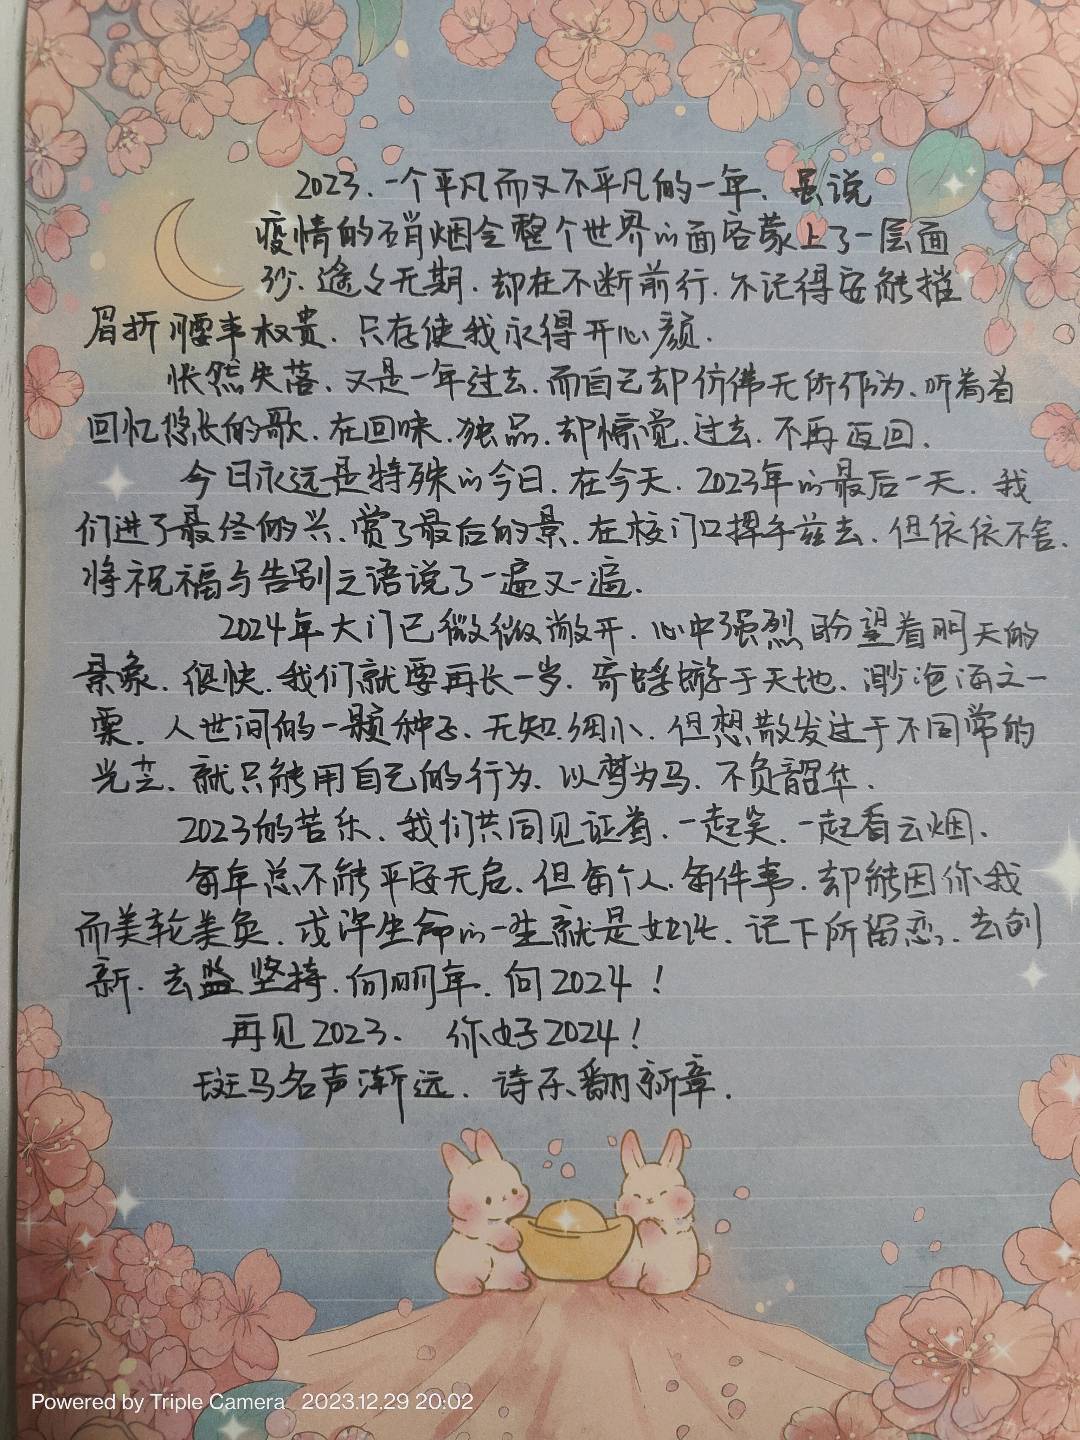 2023.一个平凡而又不平凡的一年.虽说
疫情的硝烟令整个世界的面容蒙上了一层面
纱.遥々无期.却在不断前行.不记得安能摧
眉折腰事权贵.只存使我永得开心颜.
怅然失落.又是一年过去.而自己却仿佛无所作为.听着首
回忆悠长的歌.在回味.独品.却惊觉.过去.不再返回.
今日永远是特殊的今日.在今天.2023年的最后一天.我
们进了最终的兴.赏了最后的景.在校门口挥手兹去.但依依不舍.
将祝福与告别之语说了一遍又一遍.
2024年大门已微微敞开.心中强烈盼望着明天的
景象.很快.我们就要再长一岁.寄蜉蝣于天地.渺沧海之一
粟.人世间的一颗种子.无知.细小.但想散发过于不同常的
光芒.就只能用自己的行为.以梦为马.不负韶华.
2023的苦乐.我们共同见证着.一起笑.一起看云烟.
每年总不能平安无恙.但每个人.每件事.却能因你我
而美轮美奂.或许生命的一生就是如此.记下所留恋.去创
新.去坚持.向明年.向2024!
再见2023. 你好2024!
斑马名声渐远.诗乐翻新章.